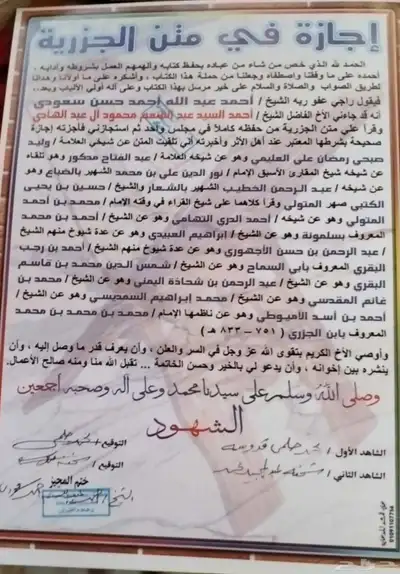 إجازة في متن الجزرية
الحمد لله الذي خص من شاء من عباده بحفظ كتابه وألهمهم العمل بشروطه وآدابه ،
أحمده على ما وفقنا واصطفاه وجعلنا من حملة هذا الكتاب ، وأشكره على ما أولانا وهدانا
لطريق الصواب والصلاة والسلام على خير مرسل بهذا الكتاب وعلى آله أولى الألباب وبعد..
فيقول راجي عفو ربه الشيخ / أحمد عبد الله أحمد حسن سعودي
أنه قد جاءني الأخ الفاضل الشيخ / أحمد السيد عبد المنعم محمود آل عبد الهادي
وقرأ علي متن الجزرية من حفظه كاملاً في مجلس واحد ثم استجازني فأجزته إجازة
صحيحة بشرطها المعتبر عند أهل الأثر وأخبرته أني تلقيت المتن عن شيخي العلامة / وليد
صبحي رمضان علي العليمي وهو عن شيخه العلامة / عبد الفتاح مدكور وهو تلقاه
عن شيخه شيخ المقارئ الأسبق الإمام / نور الدين علي بن محمد الشهير بالضباع وهو
عن شيخه / عبد الرحمن الخطيب الشهير بالشعار والشيخ / حسين بن يحيى
الكتبي صهر المتولي وقرأ كلاهما على شيخ القراء في وقته الإمام / محمد بن أحمد
المتولي وهو عن شيخه / أحمد الدري التهامي وهو عن الشيخ / أحمد بن محمد
المعروف بسلمونة وهو عن الشيخ / إبراهيم العبيدي وهو عن عدة شيوخ منهم الشيخ
/ عبد الرحمن بن حسن الأجهوري وهو عن عدة شيوخ منهم الشيخ / أحمد بن رجب
البقري المعروف بأبي السماح وهو عن الشيخ / شمس الدين محمد بن قاسم
البقري وهو عن الشيخ / عبد الرحمن بن شحاذة اليمني وهو عن الشيخ / محمد بن
غانم المقدسي وهو عن الشيخ / محمد إبراهيم السمديسي وهو عن الشيخ /
أحمد بن أسد الأميوطي وهو عن ناظمها الإمام / محمد بن محمد بن محمد بن محمد
المعروف بابن الجزري ( ٧٥١ - ٨٣٣ هـ )
وأوصي الأخ الكريم بتقوى الله عز وجل في السر والعلن ، وأن يعرف قدر ما وصل إليه ، وأن
ينشره بين إخوانه ، وأن يدعو لي بالخير وحسن الخاتمة ... تقبل الله منا ومنه صالح الأعمال.
وصلى الله وسلم على سيدنا محمد وعلى آله وصحبه أجمعين
الشهود
الشاهد الأول / محمد حلمي التوقيع / محمد حلمي
الشاهد الثاني / التوقيع /
ختم المجيز